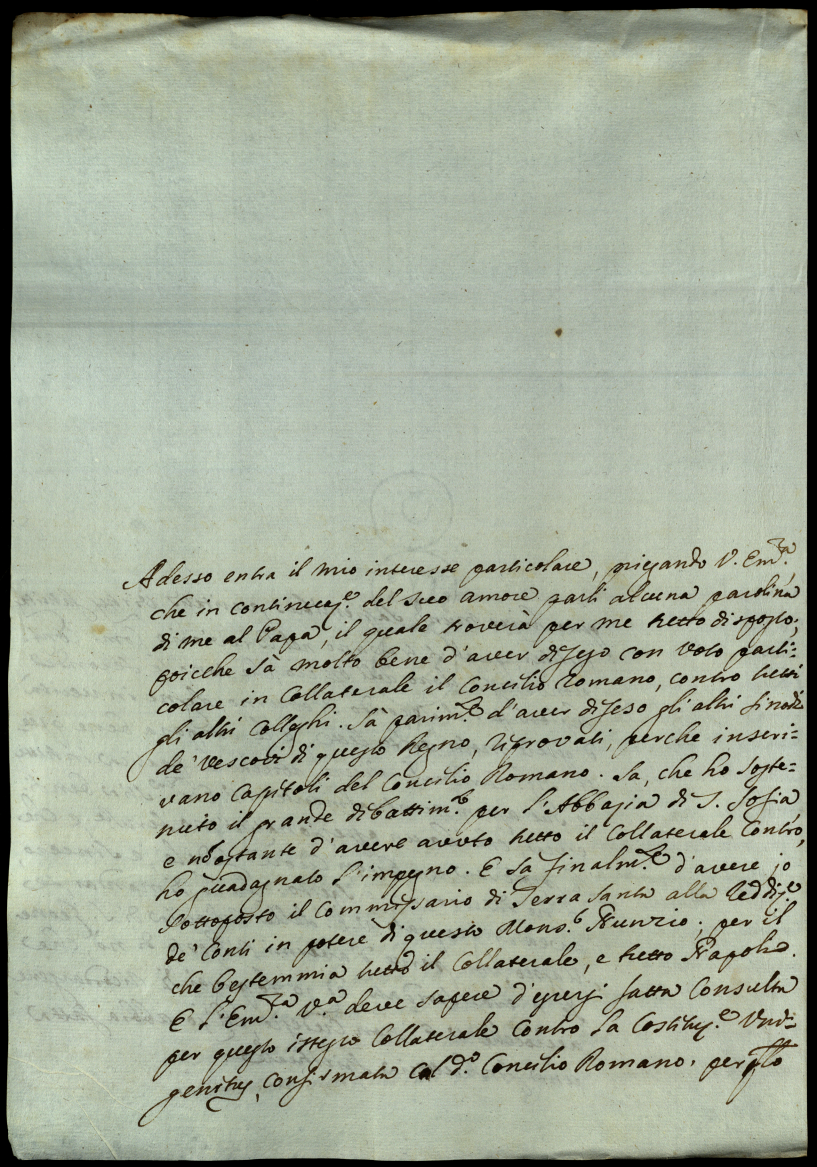 Adesso entra il mio interesse particolare, priegando V. Em.za,
che in continuaz.e del suo amore parli alcuna parolina
di me al Papa, il quale troverà per me tutto disposto;
poicche sà molto bene d'aver difeso con voto parti=
colare in Collaterale il Concilio Romano, contro tutti
gli altri Colleghi. Sà parim.te d'aver difeso gli altri sinodi
de' Vescovi di questo Regno, riprovati, perche inseri=
vano Capitoli del Concilio Romano. Sa, che ho soste=
nuto il grande dibattim.to per l'Abbazia di S. Sofia,
e nõostante d'avere avuto tutto il Collaterale Contro,
ho guadagnato l'impegno. E sà finalm.te d'avere io
sottoposto il Commissario di Terra Santa alla reddiz.e
de' Conti in potere di questo Mons.r Nunzio; per il
che bestemmia tutto il Collaterale, e tutto Napoli.
E l'Em.za V.a deve sapere d'essersi fatta Consulta
per questo istesso Collaterale Contro la Costituz.e Uni=
genitus, Confirmata Col d.o Concilio Romano. per q͠sto